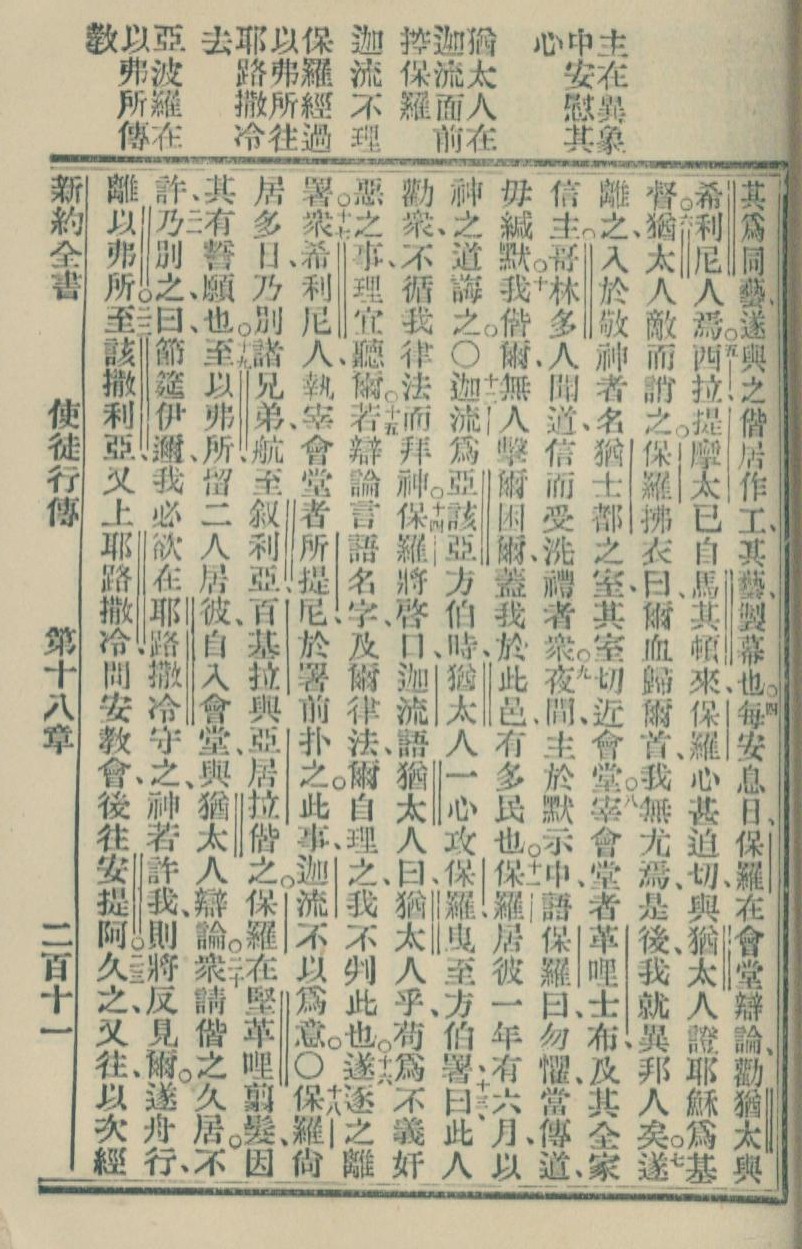 主在異象
中安慰其
心
猶太人在
迦流面前
控保羅
迦流不理
保羅經過
以弗所往
耶路撒冷
去
亞波羅在
以弗所傳
教
其爲同藝、遂與之偕居作工、其藝、製幕也、○四每安息日、保羅在會堂辯論、勸猶太與
希利尼人焉、○五西拉提摩太已自馬其頓來、保羅心甚迫切、與猶太人證耶穌爲基
督、○六猶太人敵而誚之、保羅拂衣曰、爾血歸爾首、我無尤焉、是後、我就異邦人矣、○七遂
離之、入於敬神者名猶士都之室、其室切近會堂、○八宰會堂者革哩士布、及其全家
信主、哥林多人聞道、信而受洗禮者衆、○九夜間、主於默示中、語保羅曰、勿懼、當傳道、
毋緘默、○十我偕爾、無人擊爾困爾、蓋我於此邑、有多民也、○十一保羅居彼一年有六月、以
神之道誨之、○十二迦流爲亞該亞方伯時、猶太人一心攻保羅、曳至方伯署、○十三曰、此人
勸衆、不循我律法而拜神、○十四保羅將啓口、迦流語猶太人曰、猶太人乎、苟爲不義奸
惡之事、理宜聽爾、○十五若辯論言語名字、及爾律法、爾自理之、我不判此也、○十六遂逐之離
署、○十七衆希利尼人、執宰會堂者所提尼、於署前扑之、此事、迦流不以爲意、○十八保羅尙
居多日、乃別諸兄弟、航至叙利亞、百基拉與亞居拉偕之、保羅在堅革哩翦髮、因
其有誓願也、○十九至以弗所、留二人居彼、自入會堂、與猶太人辯論、○二十衆請偕之久居、不
許、○二一乃別之曰、節筵伊邇、我必欲在耶路撒冷守之、神若許我、則將反見爾、遂舟行、
離以弗所、○二二至該撒利亞、又上耶路撒冷問安教會、後往安提阿、○二三久之、又往、以次經
新約全書　使徒行傳　第十八章　二百十一